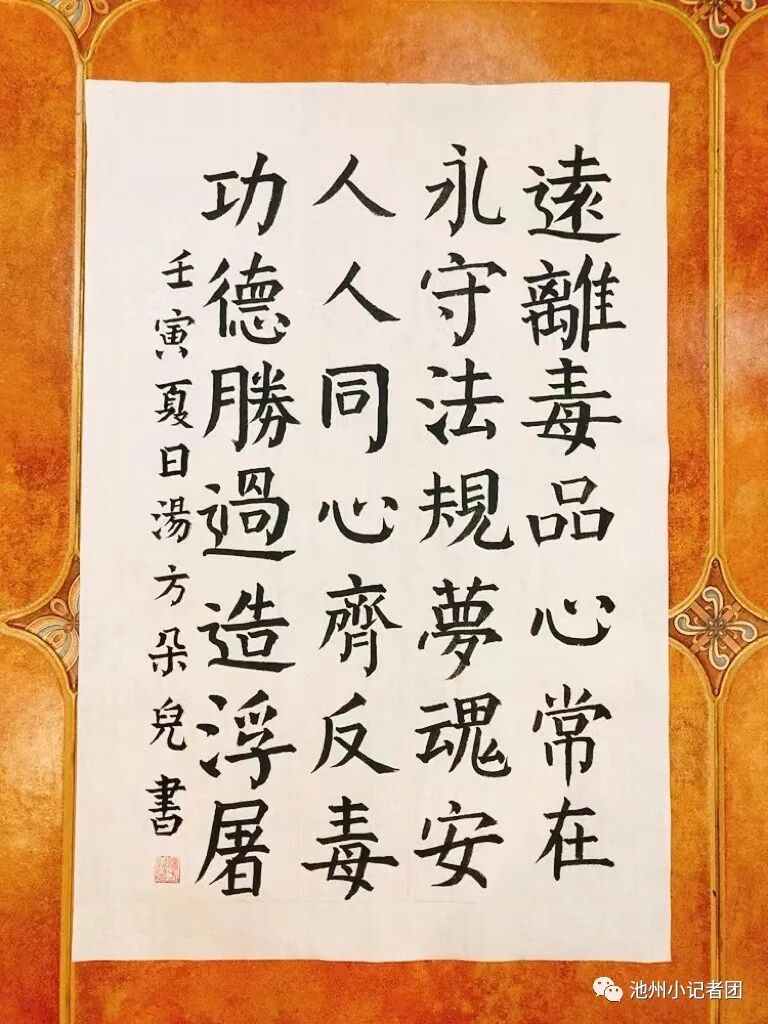 遠離毒品心常在
永守法規夢魂安
人人同心齊反毒
功德勝過造浮屠
壬寅夏日湯方朵兒書
池州小记者团